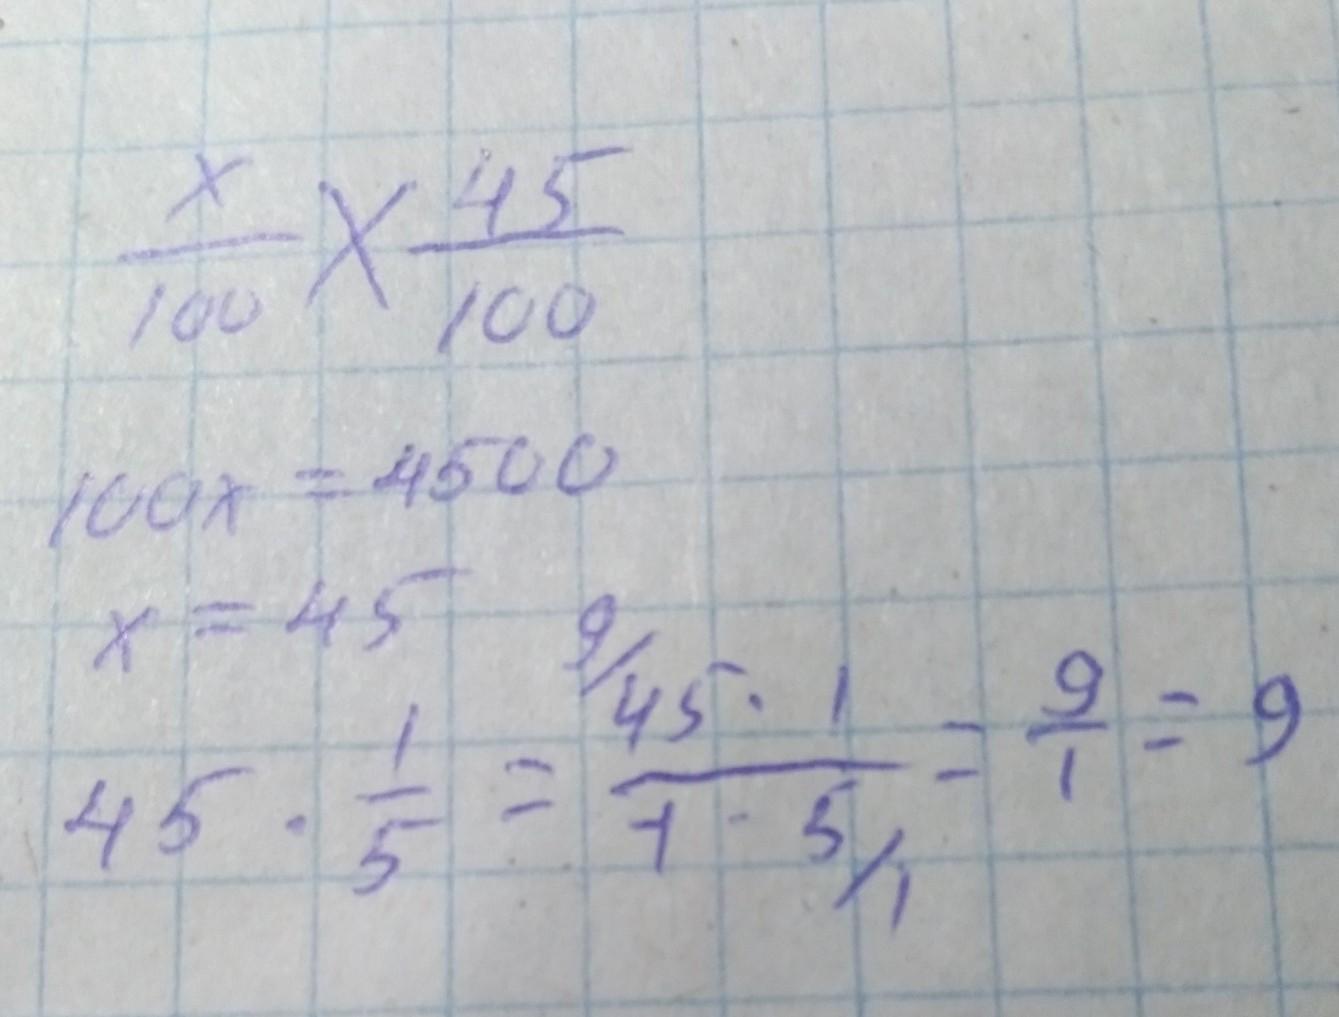 x/100 X 45/100
100x = 4500
x = 45
45 · 1/5 = 9/45 · 1 / 1 · 5/1 = 9/1 = 9